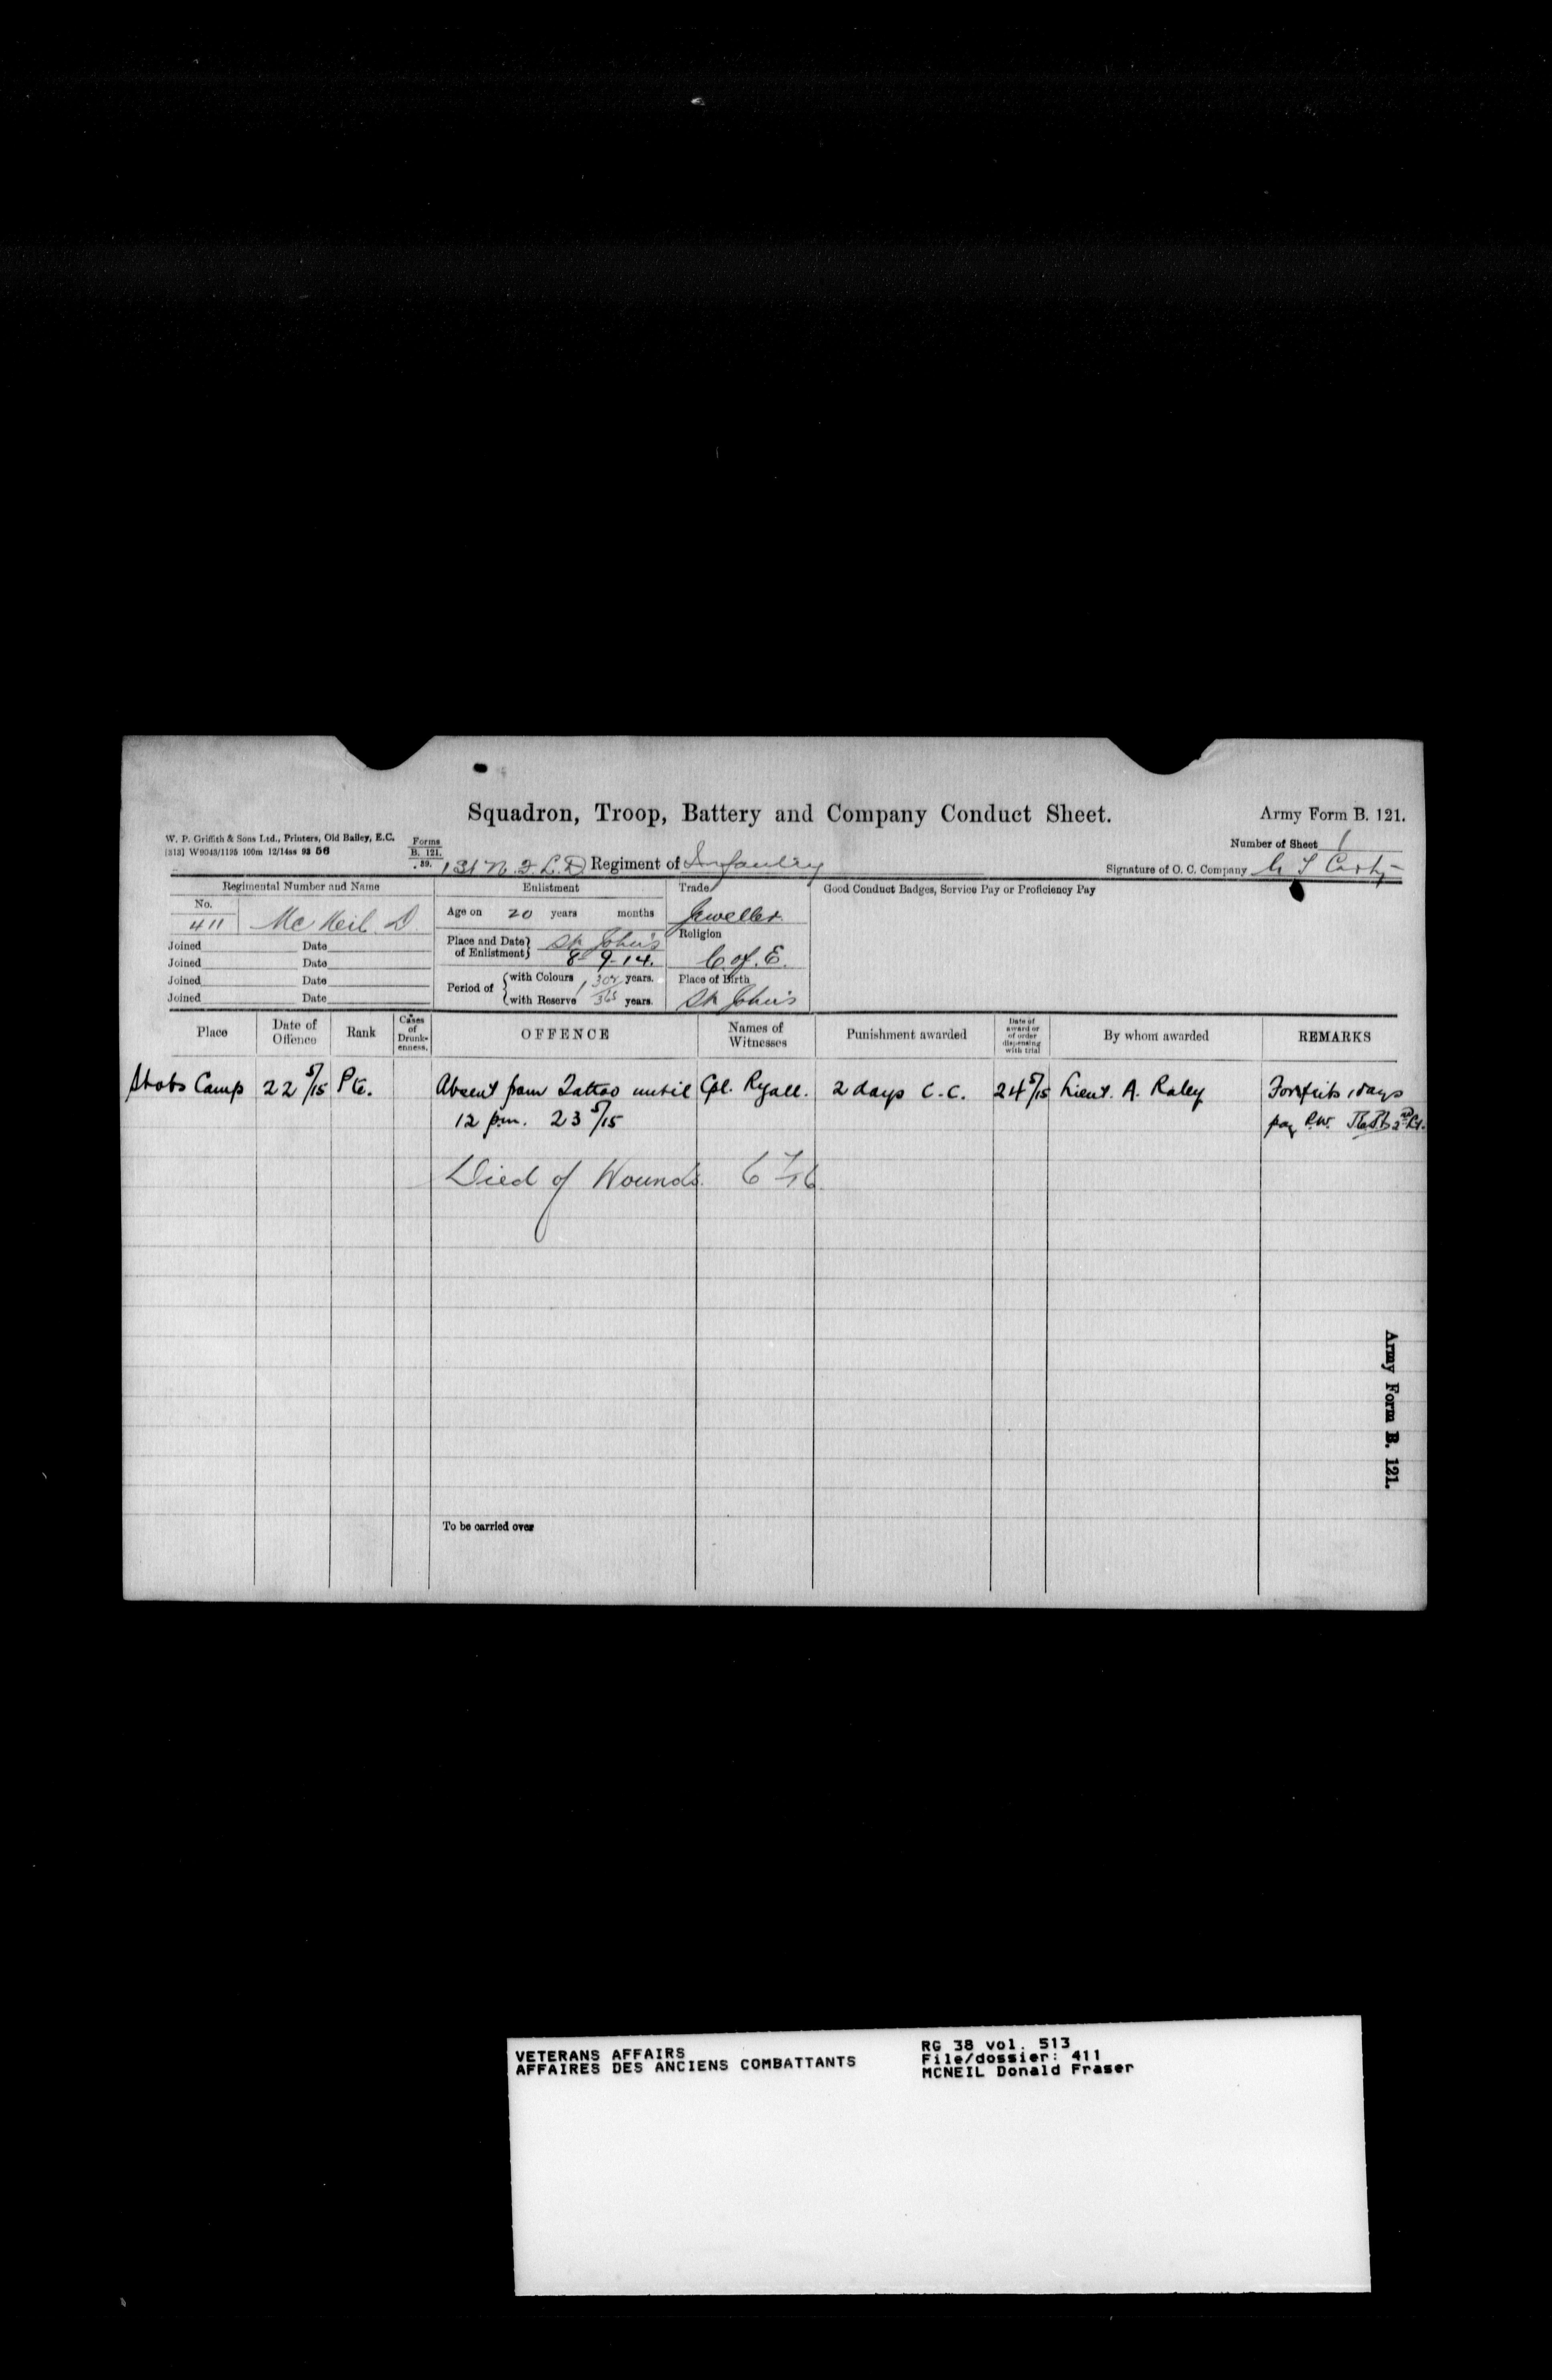 Squadron, Troop, Battery and Company Conduct Sheet.
Army Form B. 121.
W. P. Griffith & Sons Ltd., Printers, Old Bailey, E.C.
(313) W9043/1195 100m 12/14ss 93 56
Forms
B. 121.
39.
Number of Sheet 1
1st N.F.L.D Regiment of Infantry
Signature of O. C. Company
Regimental Number and Name
Enlistment
Trade
Good Conduct Badges, Service Pay or Proficiency Pay
No.
411 McNeil. D.
Age on 20 years months
Jeweller
Joined Date
Place and Date of Enlistment St John's
8-9-14.
Religion
C. of. E.
Joined Date
Joined Date
Period of with Colours years.
Place of Birth
Joined Date
with Reserve 365 years.
St John's
Place
Date of Offence
Rank
Cases of Drunkenness.
OFFENCE
Names of Witnesses
Punishment awarded
Date of award or of order dispensing with trial
By whom awarded
REMARKS
Stobs Camp 22 5/15 Pte. Absent from Tattoo until Cpl. Ryall. 2 days C.C. 24 5/15 Lieut. A. Raley Forfeits 1 days
12 p.m. 23 5/15 pay R.W. 2nd Lt.
Died of Wounds. 6 7/16
To be carried over
Army Form B. 121.
VETERANS AFFAIRS
AFFAIRES DES ANCIENS COMBATTANTS
RG 38 vol. 513
File/dossier: 411
MCNEIL Donald Fraser